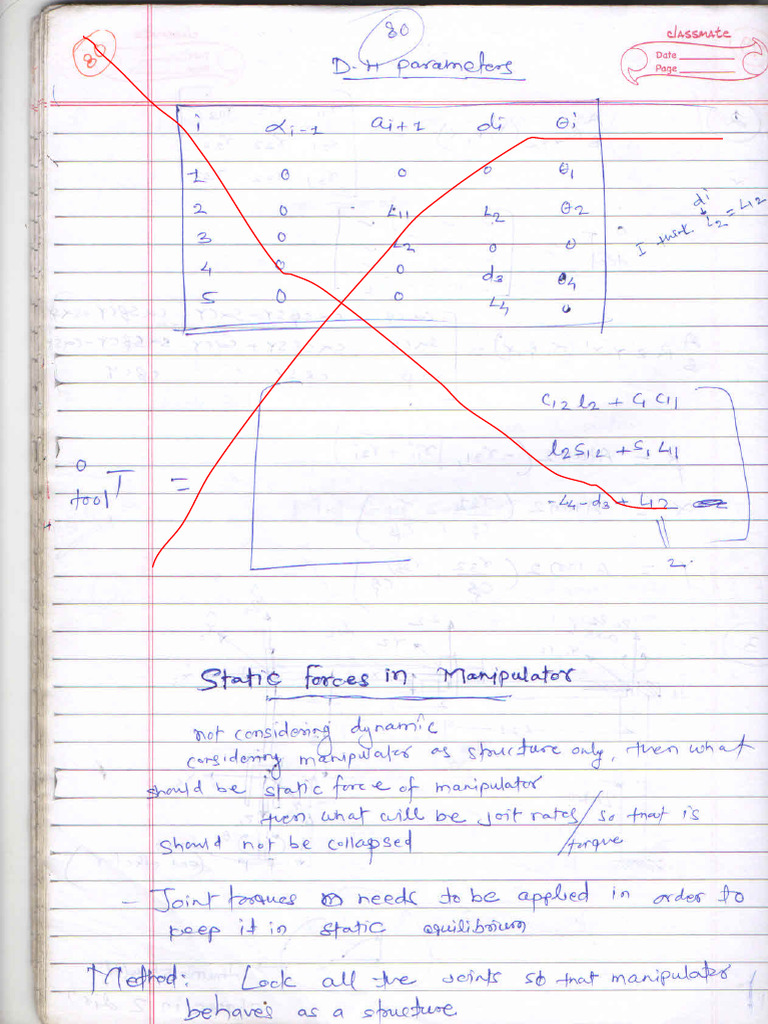 80
80
classmate
Date
Page
D-H parameters
i αi-1 ai+1 di θi
1 0 0 0 θ1
2 0 L11 L2 θ2
3 0 L2 0 0
4 0 0 d3 θ4
5 0 0 L4 0
di
I think L2 = L12
C12 l2 + C1 C11
l2 S12 + S1 L11
0
tool T =
-L4 - d3 + L12
2.
Static forces in Manipulator
not considering dynamic
considering manipulator as structure only, then what
should be static force of manipulator
then what will be joit rates / so that is
torque
should not be collapsed
- Joint torques needs to be applied in order to
keep it in static equilibrium
Method: Lock all the joints so that manipulator
behaves as a structure